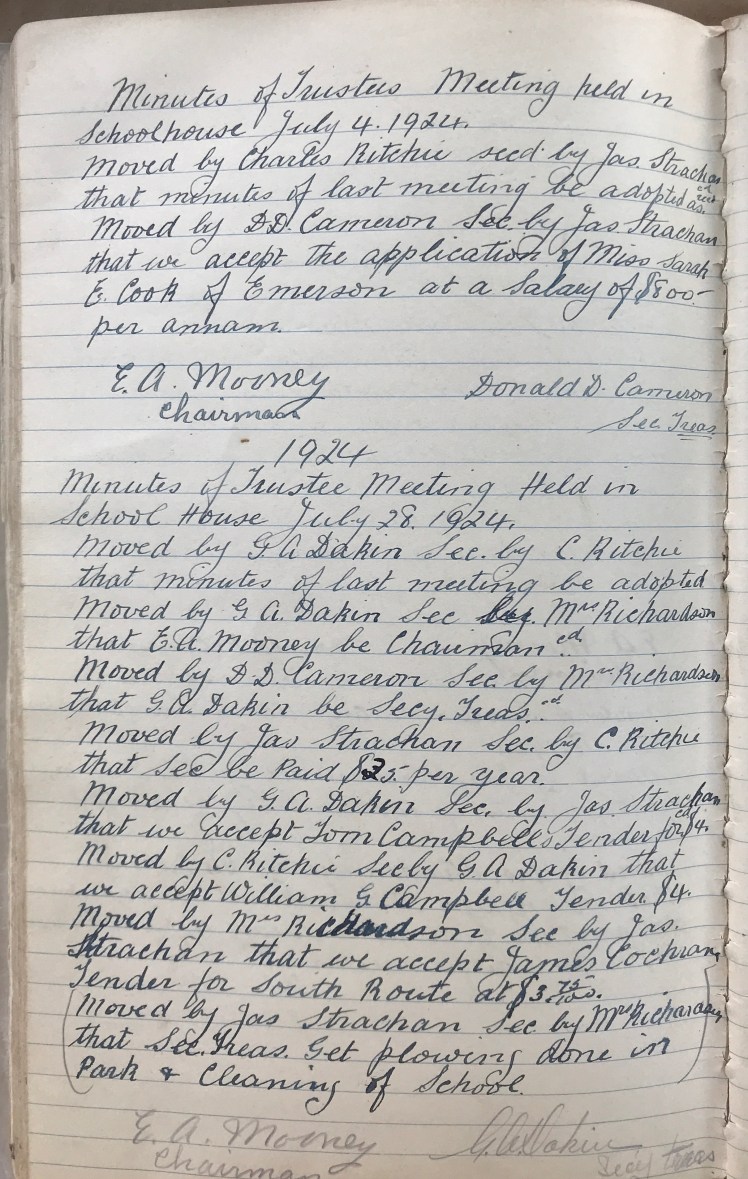 Minutes of Trustees Meeting held in
Schoolhouse July 4. 1924.
Moved by Charles Ritchie secd. by Jas. Strachan
that minutes of last meeting be adopted as
Moved by D.D. Cameron Sec. by Jas. Strachan
that we accept the application of Miss Sarah
E. Cook of Emerson at a Salary of $800.-
per annam.
E. A. Mooney Donald D. Cameron
Chairman Sec. Treas.
1924
Minutes of Trustee Meeting Held in
School House July 28. 1924.
Moved by G A Dakin Sec. by C. Ritchie
that minutes of last meeting be adopted
Moved by G A. Dakin Sec by. Mrs Richardson
that E.A. Mooney be Chairman cd.
Moved by D D. Cameron Sec. by Mrs Richardson
that G.A. Dakin be Secy. Treas. cd.
Moved by Jas Strachan Sec. by C. Ritchie
that Sec be Paid $25.- per year
Moved by G.A. Dakin Sec. by Jas. Strachan
that we accept Tom Campbells Tender for $4.
Moved by C. Ritchie Sec by G.A Dakin that
we accept William G Campbell Tender $4.
Moved by Mrs Richardson Sec by Jas.
Strachan that we accept James Cochran,
Tender for South Route at $3.75/100.
(Moved by Jas Strachan Sec. by Mrs Richardson
that Sec. Treas. Get plowing done in
Park & Cleaning of School.)
E. A. Mooney G.A.Dakin
Chairman Secy treas